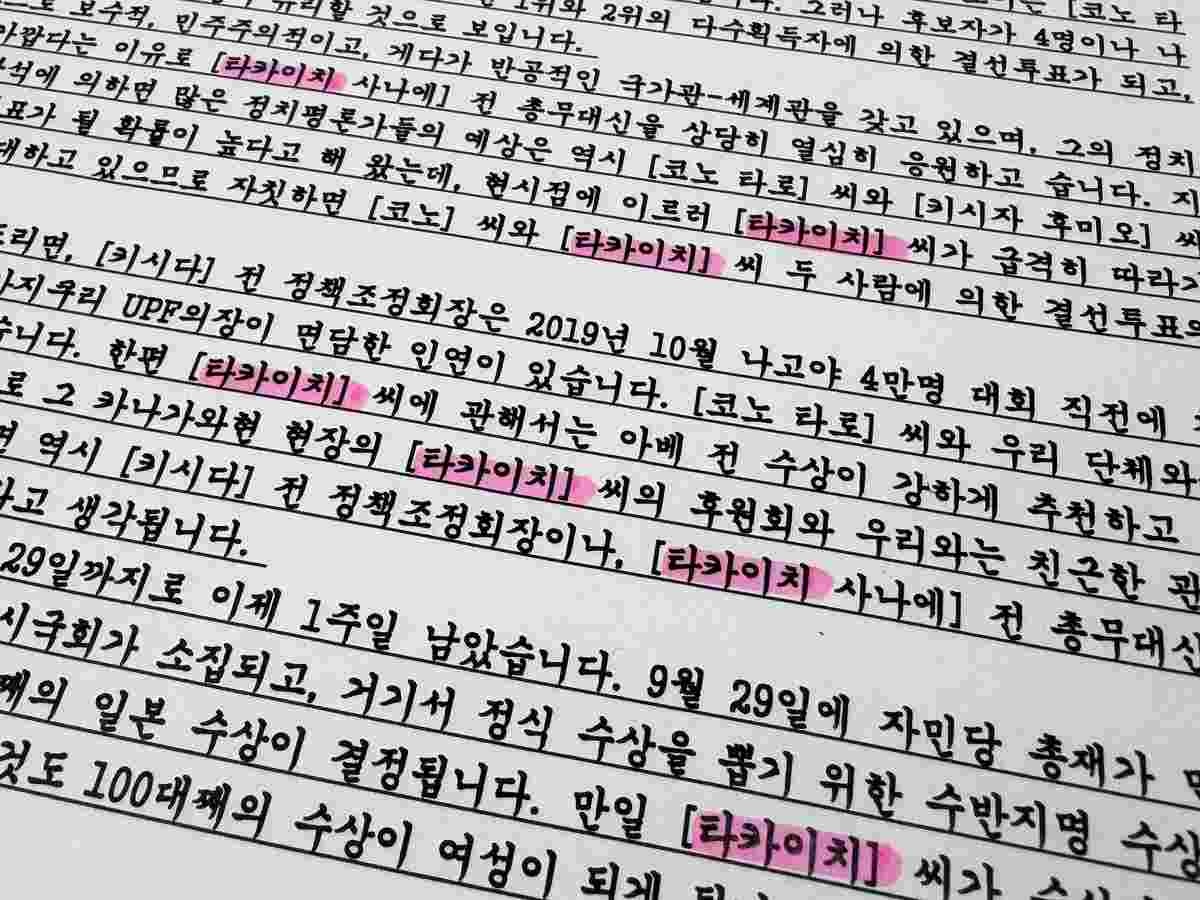 보수적, 민주주의적이고, 게다가 반공적인 국가관-세계관을 갖고 있으며, 그의 정치
유리할 것으로 보입니다.
1위와 2위의 다수획득자에 의한 결선투표가 되고,
그러나 후보자가 4명이나 나
[코노 타
이유로 [타카이치 사나에] 전 총무대신을 상당히 열심히 응원하고 습니다. 지
의하면 많은 정치평론가들의 예상은 역시 [코노 타로] 씨와 [키시자 후미오] 씨
표가 될 확률이 높다고 해 왔는데, 현시점에 이르러 [타카이치] 씨가 급격히 따라가
대하고 있으므로 자칫하면 [코노] 씨와 [타카이치] 씨 두 사람에 의한 결선투표의
드리면, [키시다] 전 정책조정회장은 2019년 10월 나고야 4만명 대회 직전에
UPF의장이 면담한 인연이 있습니다. [코노 타로] 씨와 우리 단체와
습니다. 한편 [타카이치] 씨에 관해서는 아베 전 수상이 강하게 추천하고
로 그 카나가와현 현장의 [타카이치] 씨의 후원회와 우리와는 친근한 관
면 역시 [키시다] 전 정책조정회장이나, [타카이치 사나에] 전 총무대신
라고 생각됩니다.
29일까지로 이제 1주일 남았습니다. 9월 29일에 자민당 총재가
시국회가 소집되고, 거기서 정식 수상을 뽑기 위한 수반지명
째의 일본 수상이 결정됩니다. 만일 [타카이치] 씨가
것도 100대째의 수상이 여성이 되게